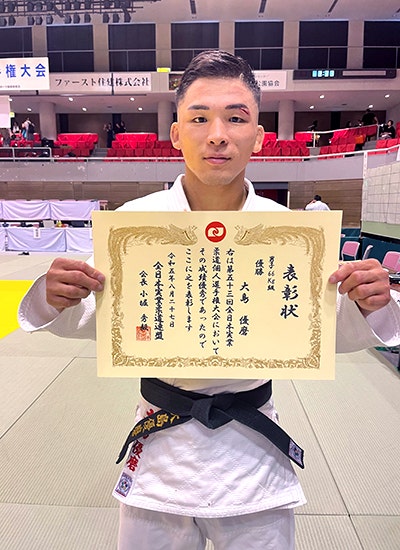 権大会
ファースト住建株式会社
公園協会
表彰状
男子66Kg級
優勝
大島 優磨
右は第五十三回全日本実業
柔道個人選手権大会において
その成績優秀であったので
ここに之を表彰します
令和五年八月二十七日
全日本実業柔道連盟
会長 小
大島優磨
優磨